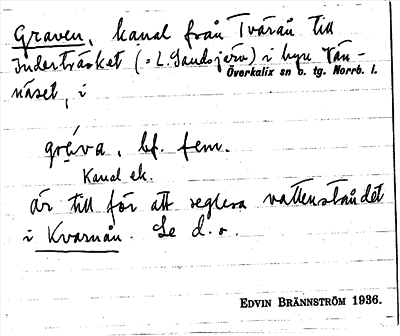 Graven, kanal från Tvärån till
Inderträsket (= L. Sandsjärv) i byn Vän-
Överkalix sn o. tg. Norrb. l.
näset, i
gräva, bf. fem.
Kanal ek.
är till för att reglera vattenståndet
i Kvarnån. Se d. o.
EDVIN BRÄNNSTRÖM 1936.